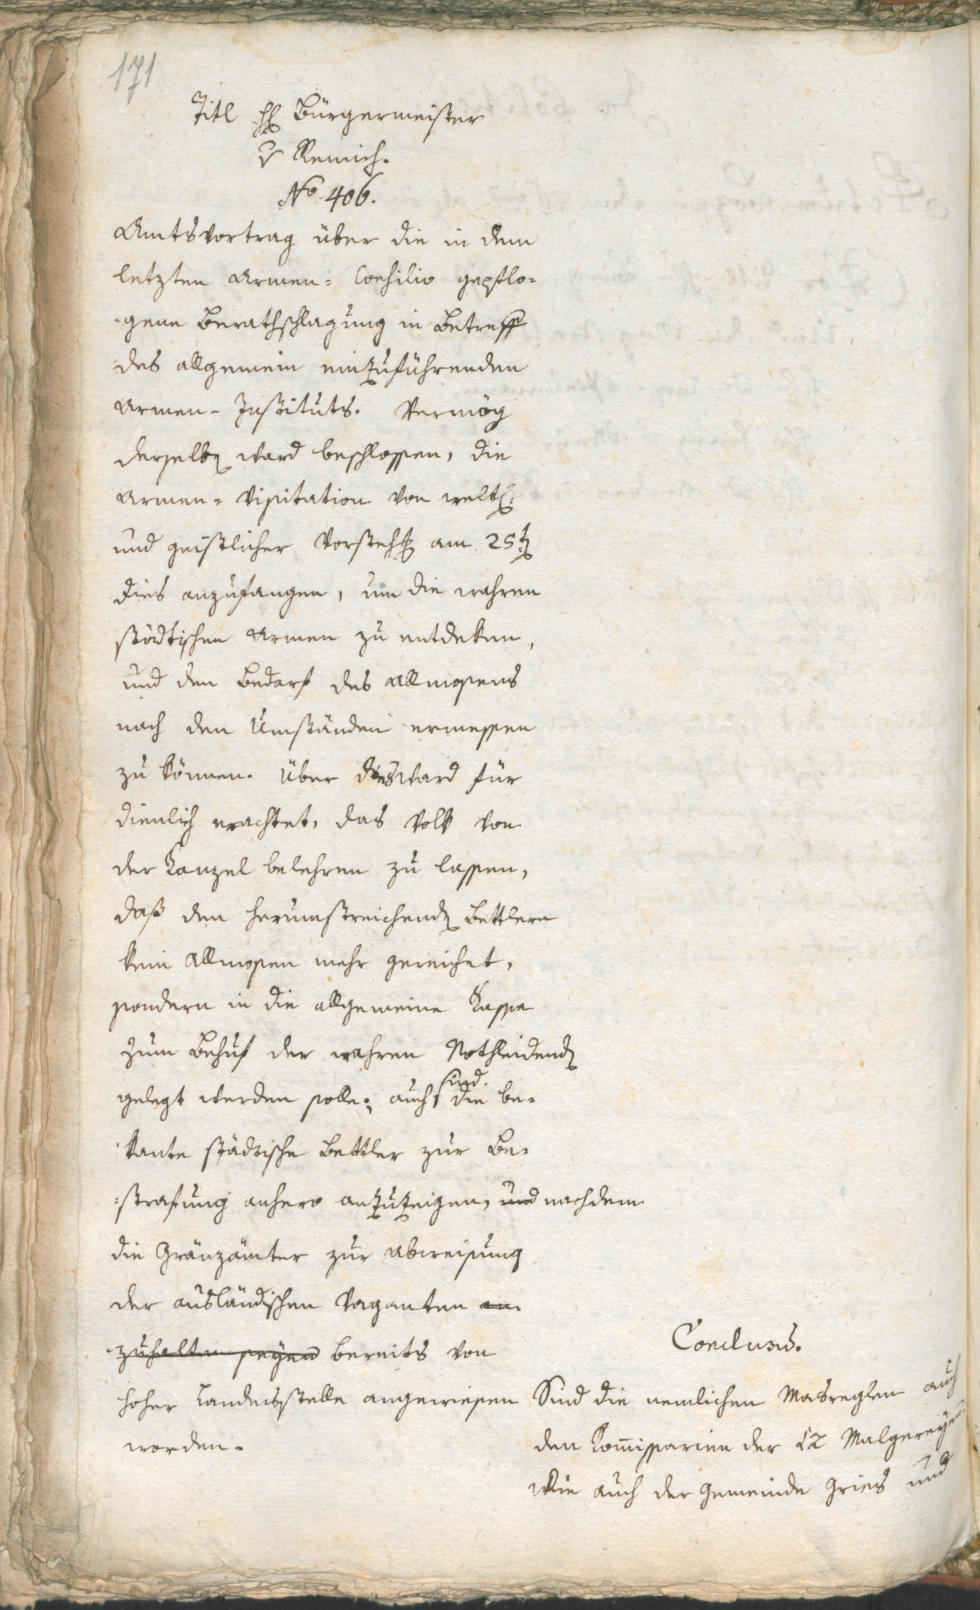 171
Titl H Bürgermeister
v Remich.
No. 406.
Amtsvortrag über die in dem
letzten Armen- Consilio gepflo-
gene Berathschlagung in Betreff
des allgemein einzuführenden
Armen-Instituts. Vermög
derselben ward beschlossen, die
Armen-Visitation von weltl.
und geistlicher Vorstehg am 25t
dies anzufangen, um die wahren
städtischen Armen zu entdeken,
und den Bedarf des Allmosens
nach den Umständen ermessen
zu können. Über dies ward für
dienlich erachtet, das Volk von
der Kanzel belehren zu lassen,
daß den herumstreichenden Bettlern
kein Allmosen mehr gereichet,
sondern in die allgemeine Kasse
zum Behuf der wahren Nothleidenden
gelegt werden solle; auch sind. die be-
kante städtische Bettler zur Be-
strafung anhero anzuzeigen, und nachdem
die Gränzämter zur Abweisung
der ausländischen Vaganten an-
zuhalten seyen bereits von
hoher Landesstelle angewiesen
worden.
Conclusus.
Sind die nemlichen Masreglen auch
den Kommissarien der 12 Malgereyen
wie auch der Gemeinde Gries und